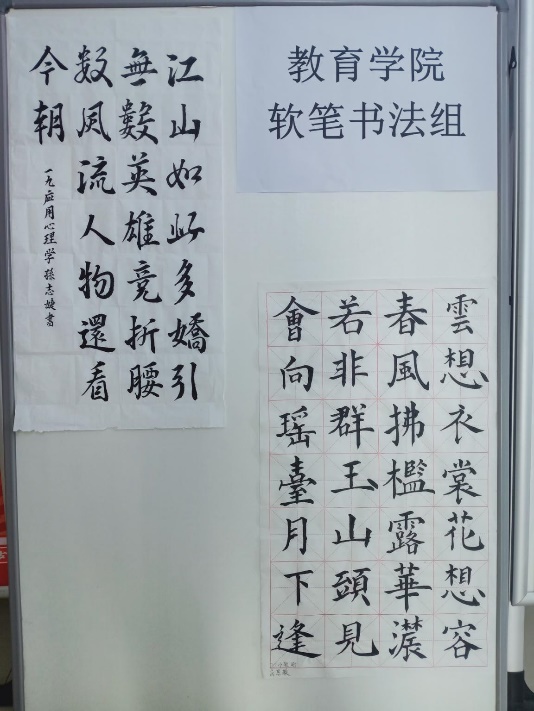 教育学院
软笔书法组
江山如此多嬌引
無數英雄竞折腰
数风流人物還看
今朝
一九应用心理学孫志婕書
雲想衣裳花想容
春風拂檻露華濃
若非群玉山頭見
會向瑶臺月下逢